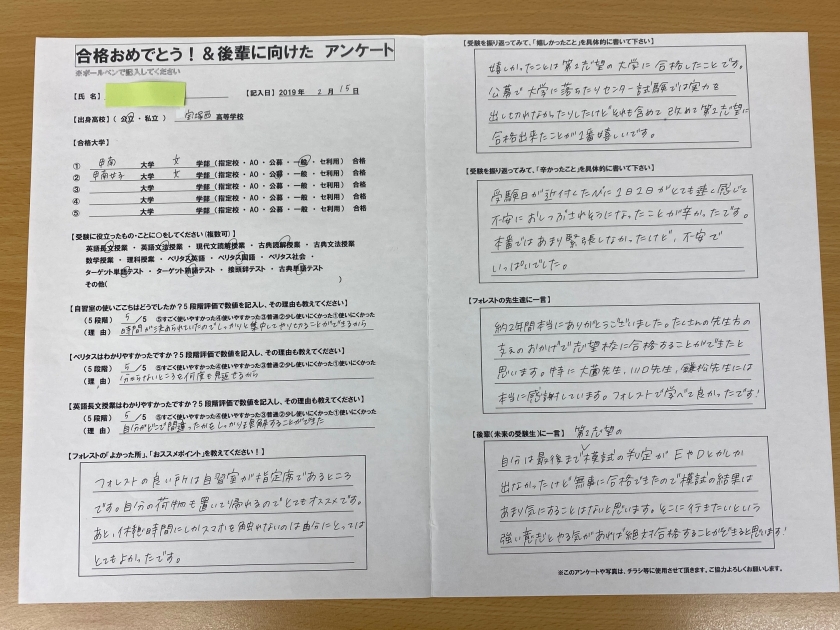 合格おめでとう！&後輩に向けた アンケート
※ボールペンで記入してください
【氏 名】
【記入日】2019年 2月 15日
【出身高校】( 公立・私立 ) 宝塚西 高等学校
【合格大学】
① 甲南 大学 文 学部 (指定校・AO・公募・一般・セ利用) 合格
② 甲南女子 大学 文 学部 (指定校・AO・公募・一般・セ利用) 合格
③ 大学 学部 (指定校・AO・公募・一般・セ利用) 合格
④ 大学 学部 (指定校・AO・公募・一般・セ利用) 合格
⑤ 大学 学部 (指定校・AO・公募・一般・セ利用) 合格
【受験に役立ったもの・ことに○をしてください(複数可)】
英語長文授業・英語文法授業・現代文読解授業・古典読解授業・古典文法授業
数学授業・理科授業・ベリタス英語・ベリタス国語・ベリタス社会・
ターゲット単語テスト・ターゲット熟語テスト・接頭辞テスト・古典単語テスト
その他( )
【自習室の使いごこちはどうでしたか？5段階評価で数値を記入し、その理由も教えてください】
(5段階) 5 /5 ⑤すごく使いやすかった④使いやすかった③普通②少し使いにくかった①使いにくかった
(理 由) 時間が決められていたのでしっかりと集中してやりきることができるから
【ベリタスはわかりやすかったですか？5段階評価で数値を記入し、その理由も教えてください】
(5段階) 5 /5 ⑤すごく使いやすかった④使いやすかった③普通②少し使いにくかった①使いにくかった
(理 由) 分からないところを何度も見返せるから
【英語長文授業はわかりやすかったですか？5段階評価で数値を記入し、その理由も教えてください】
(5段階) 5 /5 ⑤すごく使いやすかった④使いやすかった③普通②少し使いにくかった①使いにくかった
(理 由) 自分がどこで間違ったかをしっかりと理解することができた
【フォレストの「よかった所」、「おススメポイント」を教えてください！】
フォレストの良い所は自習室が指定席であるところ
です。自分の荷物も置いて帰れるのでとてもオススメです。
あと、休憩時間にしかスマホを触れないのは自分にとっては
とてもよかったです。
【受験を振り返ってみて、「嬉しかったこと」を具体的に書いて下さい】
嬉しかったことは第2志望の大学に合格したことです。
公募で大学に落ちたりセンター試験では実力を
出しきれなかったりしたけどそれも含めて改めて第2志望に
合格出来たことが1番嬉しいです。
【受験を振り返ってみて、「辛かったこと」を具体的に書いて下さい】
受験日が近付くたびに1日1日がとても速く感じて
不安におしつぶされそうになったことが辛かったです。
本番ではあまり緊張しなかったけど、不安で
いっぱいでした。
【フォレストの先生達に一言】
約2年間本当にありがとうございました。たくさんの先生方の
支えのおかげで志望校に合格することができたと
思います。特に大薗先生、川口先生、鎌松先生には
本当に感謝しています。フォレストで学べて良かったです！
【後輩(未来の受験生)に一言】 第2志望の
自分は最後まで模試の判定がEやDとかしか
出なかったけど無事に合格できたので模試の結果は
あまり気にすることはないと思います。そこに行きたいという
強い意志とやる気があれば絶対合格することができると思います！
※このアンケートや写真は、チラシ等に使用させて頂きます。ご協力よろしくお願いします。